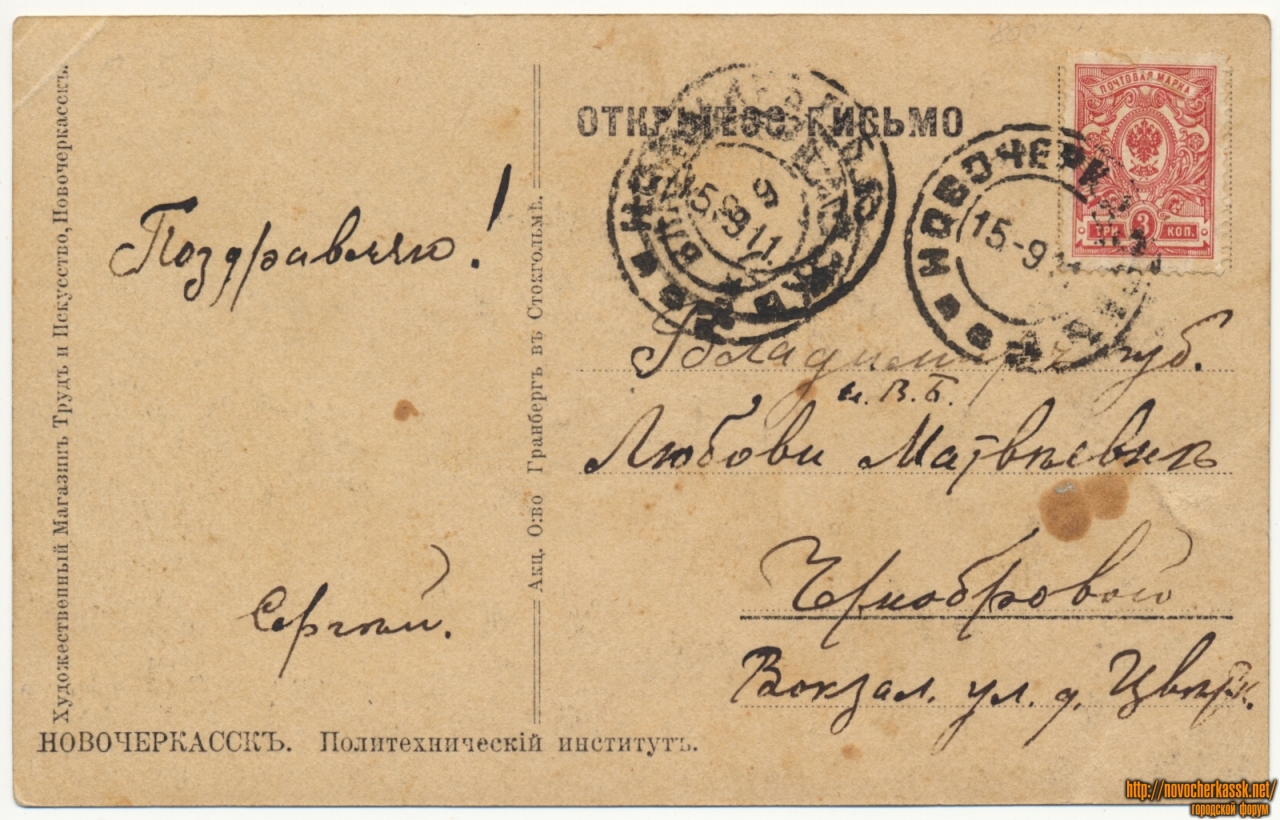 Художественный Магазинъ Трудъ и Искусство, Новочеркасскъ.
Поздравляю!
Сергѣй.
Акц. О:во Гранбергъ въ Стокгольмѣ.
ОТКРЫТОЕ ПИСЬМО
ПОЧТОВАЯ МАРКА
ТРИ 3 КОП.
НОВОЧЕРК
15-9
15.9.11
Владимиръ губ.
и. В. Б.
Любови Матвѣевнѣ
Чернобровой
Вокзал. ул. д.
НОВОЧЕРКАССКЪ. Политехническій институтъ.
http://novocherkassk.net/
городской форум